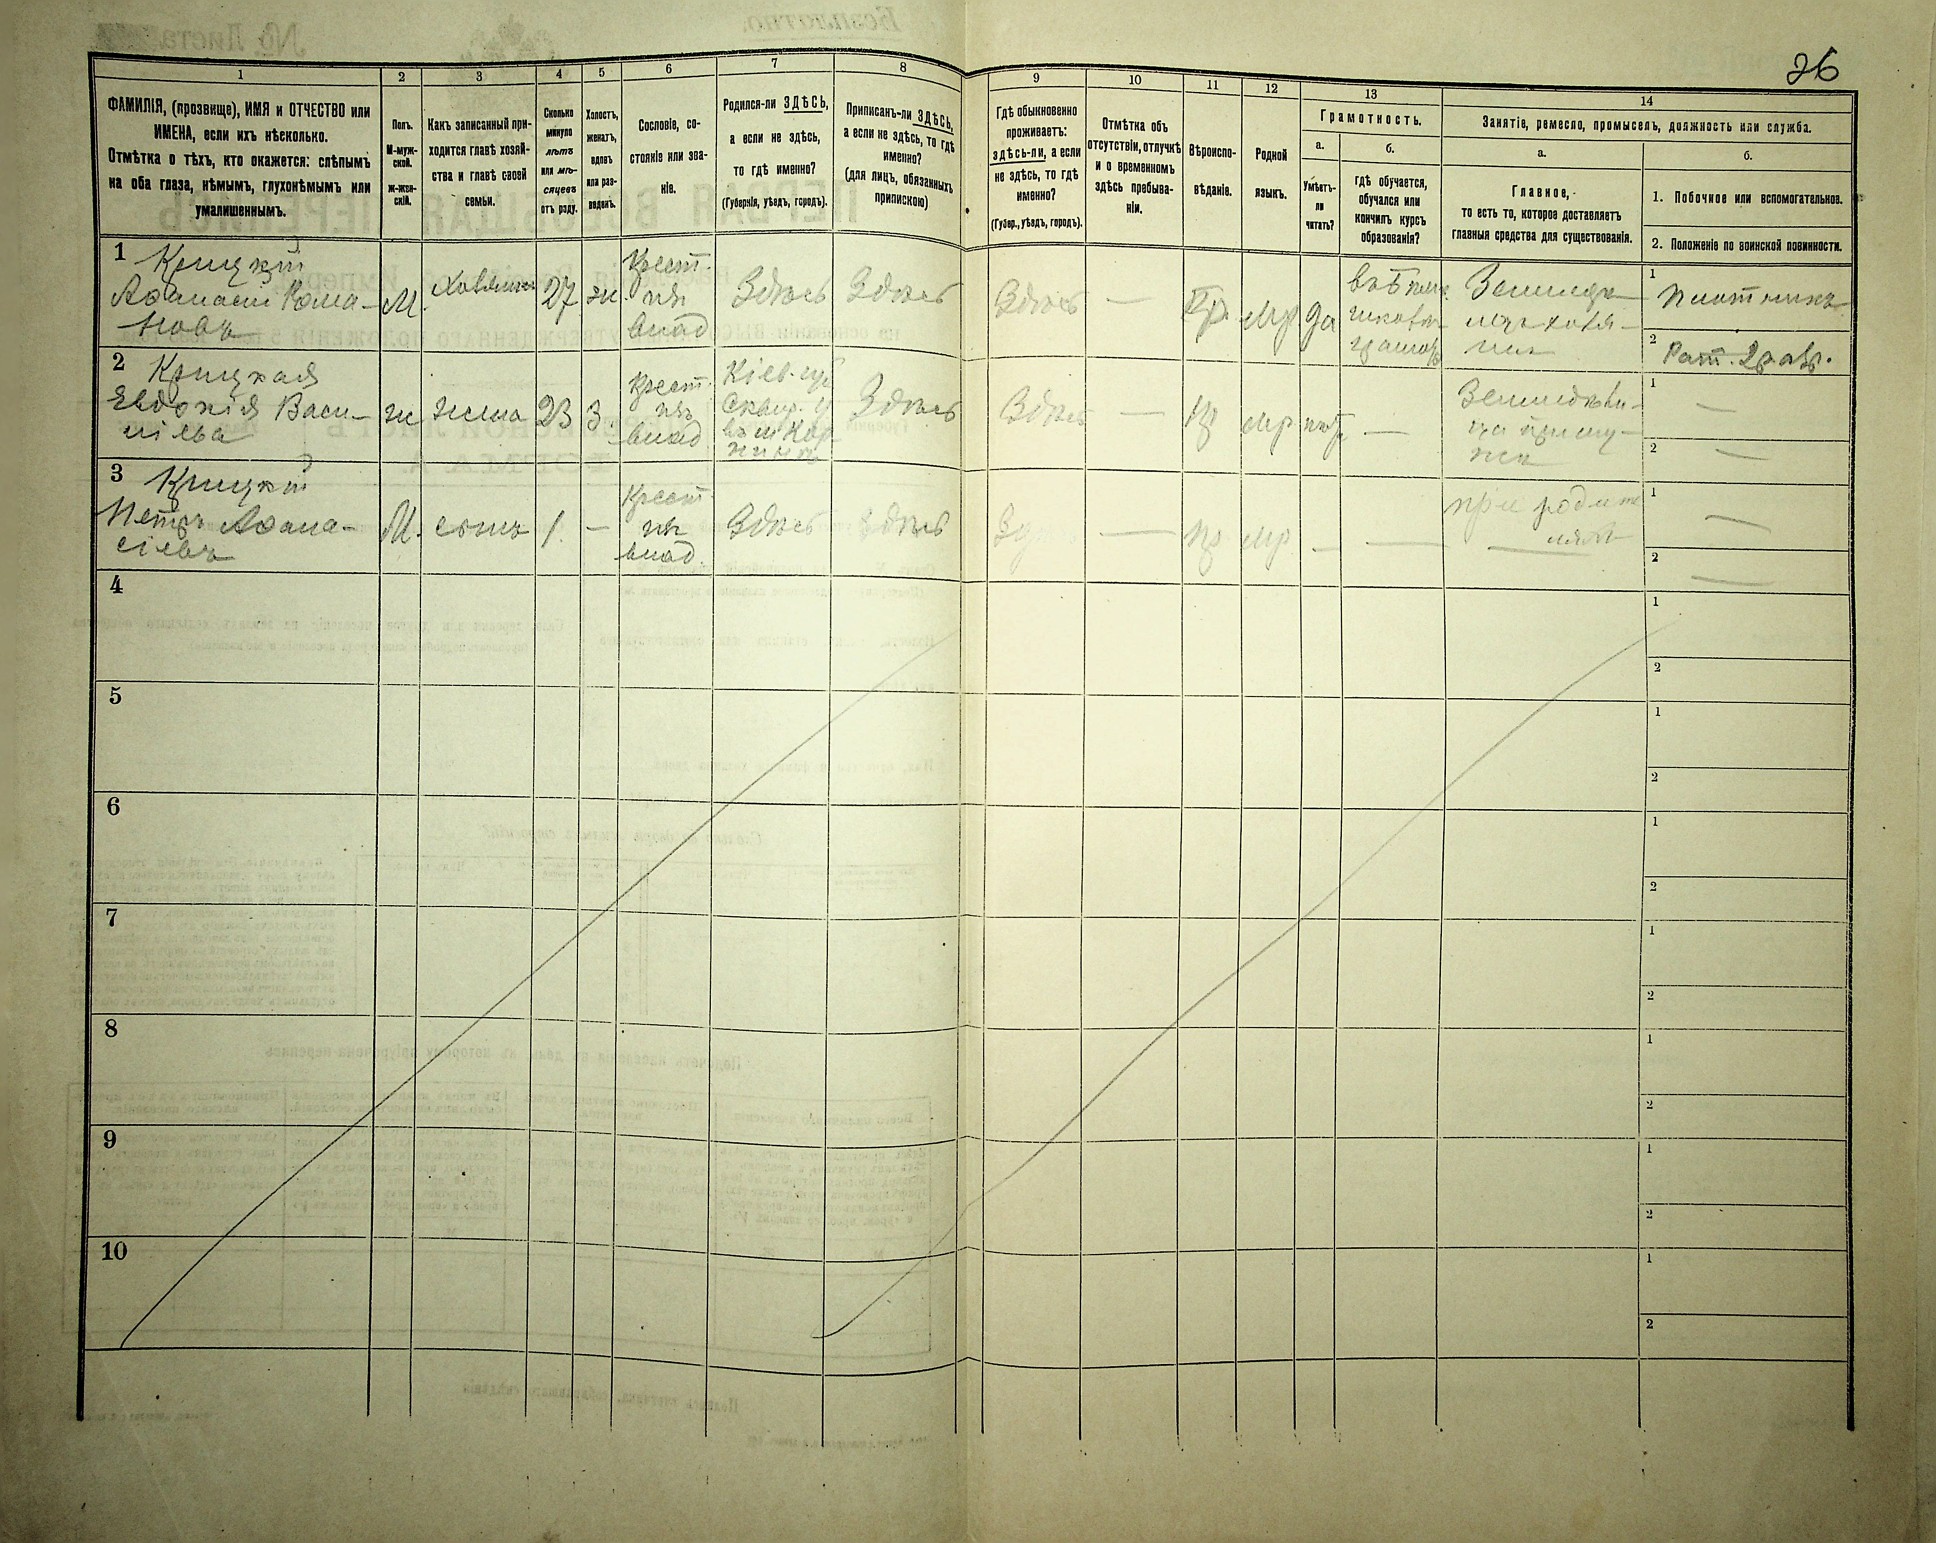 26
1
2
3
4
5
6
7
8
9
10
11
12
13
14
ФАМИЛІЯ, (прозвище), ИМЯ и ОТЧЕСТВО или
ИМЕНА, если ихъ нѣсколько.
Отмѣтка о тѣхъ, кто окажется: слѣпымъ
на оба глаза, нѣмымъ, глухонѣмымъ или
умалишеннымъ.
Полъ.
М-муж-
ской.
ж-жен-
скій.
Какъ записанный при-
ходится главѣ хозяй-
ства и главѣ своей
семьи.
Сколько
минуло
лѣтъ
или мѣ-
сяцевъ
отъ роду.
Холостъ,
женатъ,
вдовъ
или раз-
веденъ.
Сословіе, со-
стояніе или зва-
ніе.
Родился-ли ЗДѢСЬ,
а если не здѣсь,
то гдѣ именно?
(Губернія, уѣздъ, городъ).
Приписанъ-ли ЗДѢСЬ,
а если не здѣсь, то гдѣ
именно?
(для лицъ, обязанныхъ
припискою)
Гдѣ обыкновенно
проживаетъ:
здѣсь-ли, а если
не здѣсь, то гдѣ
именно?
(Губер., уѣздъ, городъ).
Отмѣтка объ
отсутствіи, отлучкѣ
и о временномъ
здѣсь пребыва-
ніи.
Вѣроиспо-
вѣданіе.
Родной
языкъ.
Грамотность.
а.
Умѣетъ-
ли
читать?
б.
гдѣ обучается,
обучался или
кончилъ курсъ
образованія?
Занятіе, ремесло, промыселъ, должность или служба.
а.
Главное,
то есть то, которое доставляетъ
главныя средства для существованія.
б.
1. Побочное или вспомогательное.
2. Положеніе по воинской повинности.
1
Крицкій
Аѳанасій Рома-
новъ
М.
Хозяинъ
27
ж.
Крест.
изъ
влад
Здѣсь
Здѣсь
Здѣсь
—
Пр.
мр
да
Земледѣ-
лецъ хозя-
инъ
1
Плотникъ
2
Рат. 2 р.
2
Крицкая
Евдокія Васи-
ліева
ж
жена
23
З.
Крест.
изъ
влад
Кіев. губ
Сквир. у
Здѣсь
Здѣсь
—
Пр
мр
нѣт
—
1
—
2
—
3
Крицкій
Петръ Аѳана-
сіевъ
М.
сынъ
1.
—
Крест
изъ
влад.
Здѣсь
Здѣсь
—
пр
мр
—
—
при родите
ляхъ
1
—
2
—
4
1
2
5
1
2
6
1
2
7
1
2
8
1
2
9
1
2
10
1
2